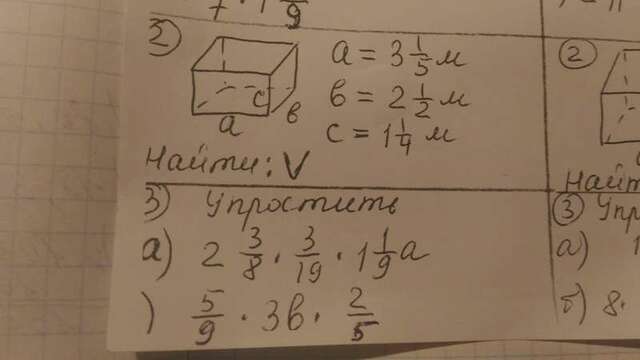 2)
a = 3 1/5 м
в = 2 1/2 м
c = 1 1/4 м
a
c
в
Найти: V
3) Упростить
а) 2 3/8 · 3/19 · 1 1/9 a
) 5/9 · 3в · 2/5
2
3
а)
б) 8 ·